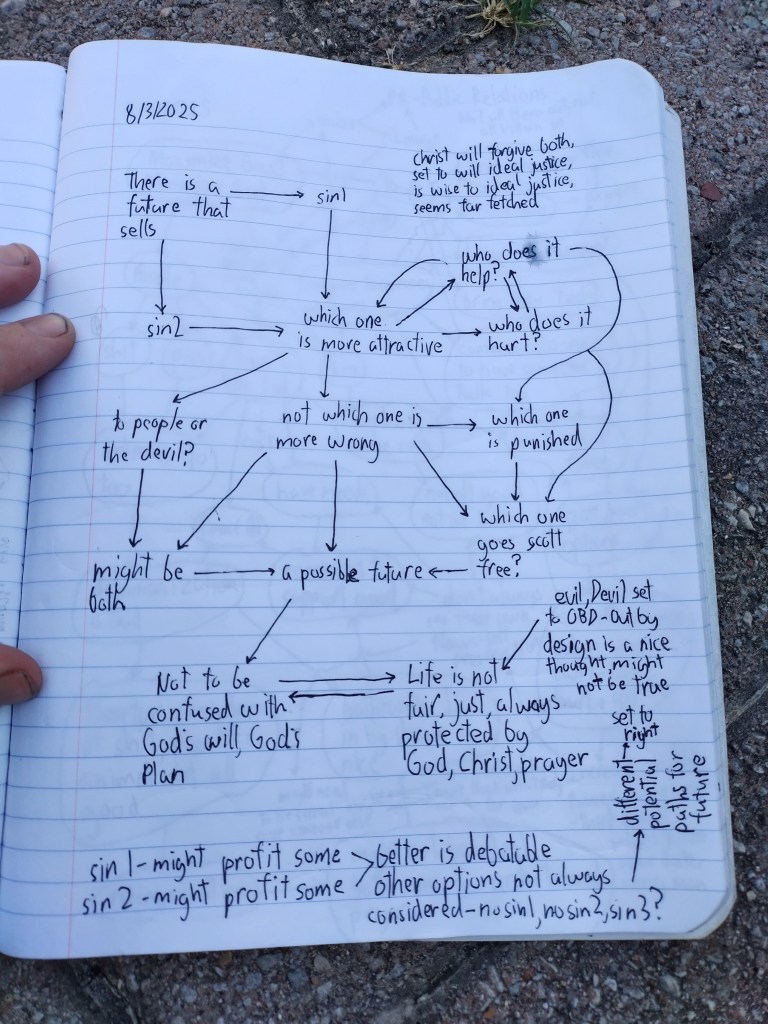 8/3/2025
christ will forgive both,
set to will ideal justice,
is wise to ideal justice,
seems far fetched
There is a
future that
sells
sin1
who does it
help?
sin2
which one
is more attractive
who does it
hurt?
to people or
the devil?
not which one is
more wrong
which one
is punished
which one
goes scott
free?
might be
both
a possible future
evil, Devil set
to OBD-out by
design is a nice
thought, might
not be true
Not to be
confused with
God's will, God's
Plan
Life is not
fair, just, always
protected by
God, Christ, prayer
set to
right
different
potential
paths for
future
sin 1-might profit some
sin 2-might profit some
better is debatable
other options not always
considered-no sin1, no sin2, sin3?